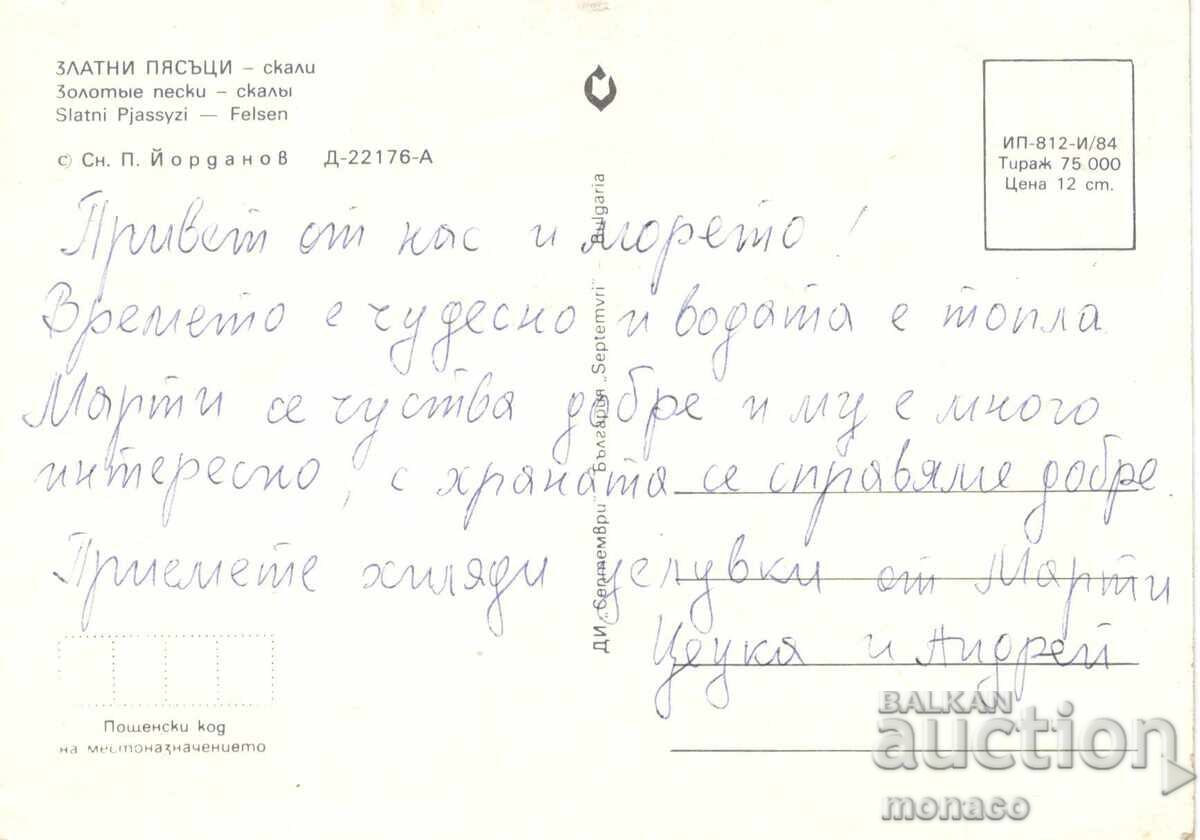 ЗЛАТНИ ПЯСЪЦИ – скали
Золотые пески – скалы
Slatni Pjassyzi — Felsen
с) Сн. П. Йорданов Д-22176-А
ИП-812-И/84
Тираж 75 000
Цена 12 ст.
Привет от нас и морето!
Времето е чудесно и водата е топла
Марти се чуства добре и му е много
интересно, с храната се справяме добре.
Приемете хиляди целувки от Марти
Цецка и Андрей
ДИ „Септември" България „Septemvri" Bulgaria
Пощенски код
на местоназначението
BALKAN
auction
monaco